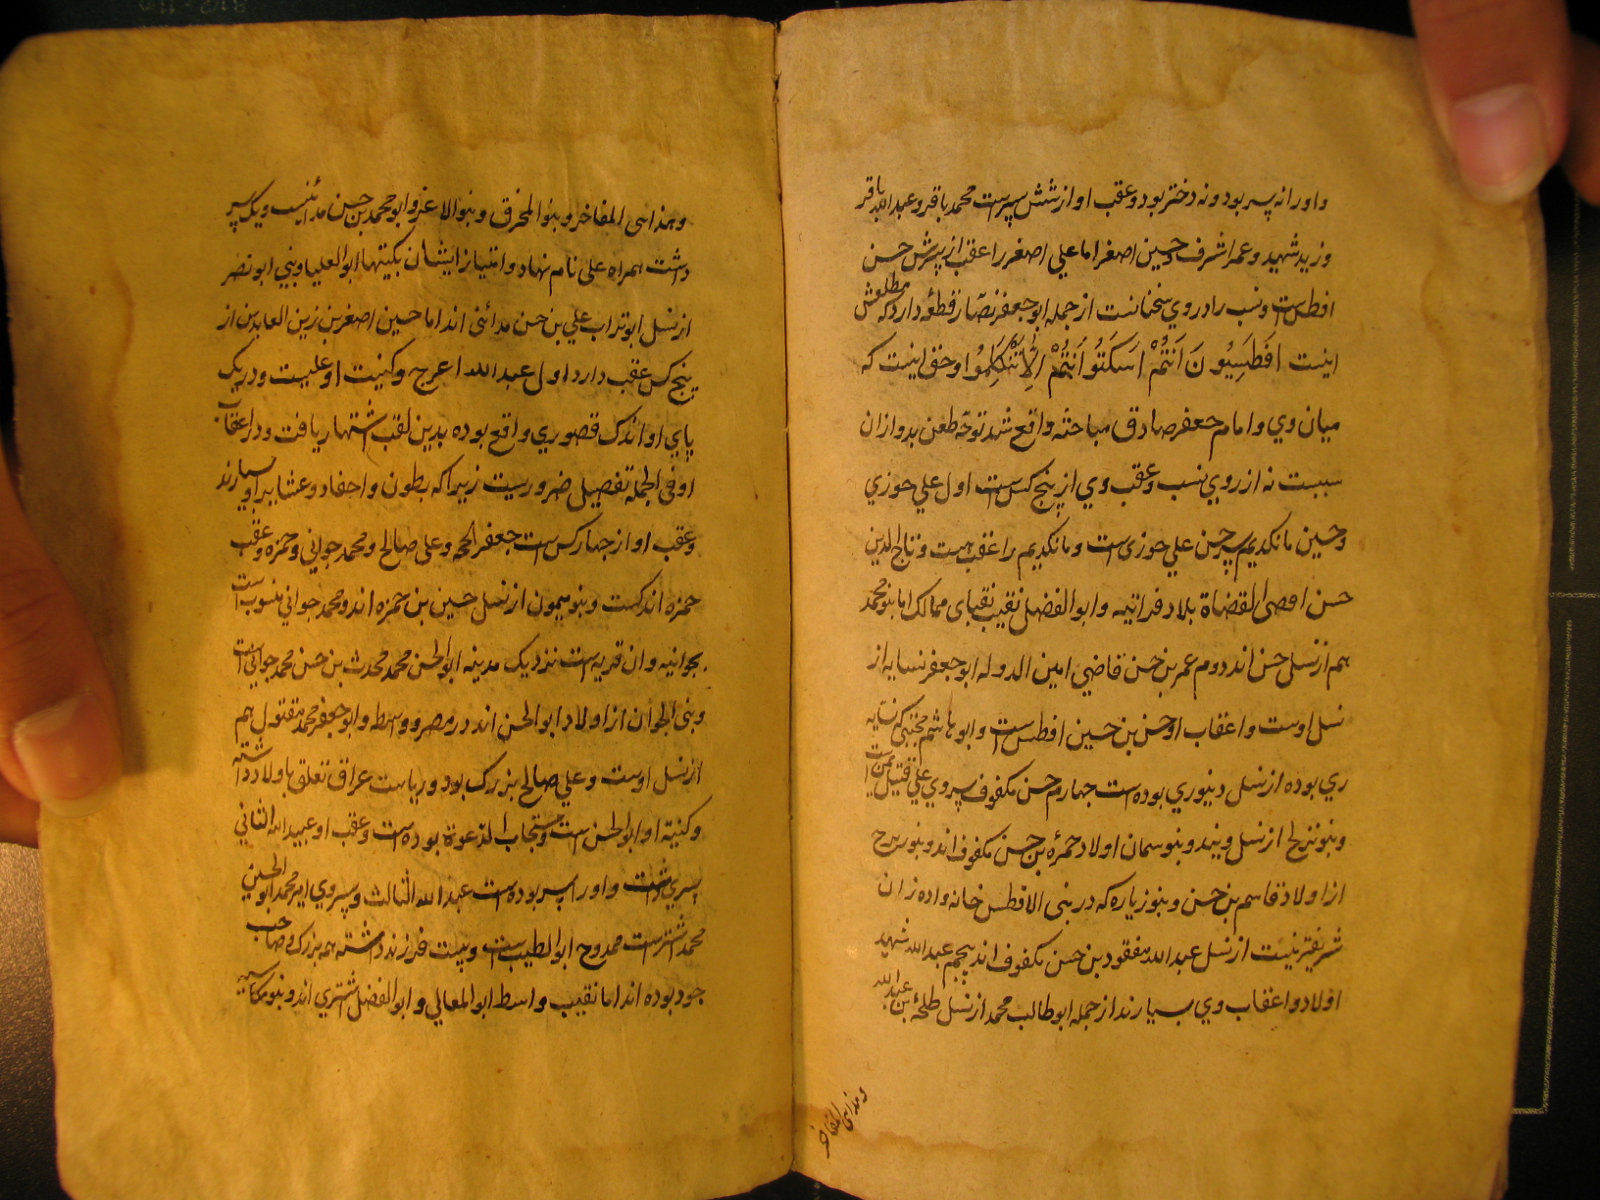 و او را نه پسر بود و نه دختر بود و عقب او از شش پسرست محمد باقر و عبدالله باقر
و زید شهید و عمر اشرف و حسین اصغر اما علی اصغر را عقب از پسرش حسن
افطس ست و نسب را در وی سخنانست از جمله ابو جعفر نصار قطعه دارد که مطلعش
اینست افطسیون انتم اسکتوا انتم الا تتکلموا و حق اینست که
میان وی و امام جعفر صادق مباحثه واقع شد توجه طعن بدو ازان
سببست نه از روی نسب و عقب وی از پنج کس ست اول علی حوزی
و حسین مانکدیم پسر حسن علی حوزی ست و مانکدیم را عقب هست و تاج الدین
حسن اقصی القضاة بلاد فراتیه و ابو الفضل نقیب نقبای ممالک اما بنو محمد
هم از نسل حسن اند دوم عمر بن حسن قاضی امین الدوله ابو جعفر نسابه از
نسل اوست و اعقاب او حسن بن حسین افطس ست و ابو هاشم مجتبی که نسابه
ری بوده از نسل دینوری بوده است چهارم حسن مکفوف پسر وی علی قتیل یمن ست
و بنو تزلج از نسل ویند و بنو سمان اولاد حمزه بن حسن مکفوف اند و بنو بربرح
از اولاد قاسم بن حسن و بنو زیاره که در بنی الافطس خانه واده زان
شریفتر نیست از نسل عبدالله مفقود بن حسن مکفوف اند پنجم عبدالله شهید
اولاد و اعقاب وی بسیارند از جمله ابو طالب محمد از نسل طلحه بن عبدالله
و هذا سی المفاخر
و هذا سی المفاخر و بنو المخرق و بنو الاغر و ابو محمد بن حسن مدائنیست و یک پسر
دشت همراه علی نام نهاد و امتیاز ایشان بکنیتها ابو العلیا و بنی ابو نصر
از نسل ابو تراب علی بن حسن مدائنی اند اما حسین اصغر بن زین العابدین از
پنج کس عقب دارد اول عبدالله اعرج و کنیت او علیست و در یک
پای او اندک قصوری واقع بوده بدین لقب اشتهار یافت و در اعقاب
او فی الجمله تفصیل ضرور یست زیرا که بطون و احفاد و عشایر او بسیارند
و عقب او از چهار کس ست جعفر الحجه و علی صالح و محمد جوانی و حمزه و عقب
حمزه اندکست و بنو میمون از نسل حسین بن حمزه اند و محمد جوانی منسوب ست
بجوانیه و ان قریه ست نزدیک مدینه ابو الحسن محمد محدث بن حسن محمد جوانی ست
و بنی الجوان از اولاد ابو الحسن اند در مصر و واسط و ابو جعفر محمد مقتول هم
از نسل اوست و علی صالح بزرک بود و ریاست عراق تعلق باولاد داشته
و کنیة او ابو الحسن ست و مستجاب الدعوة بوده ست و عقب او عبیدالله الثانی
پسری داشت و او را پسر بوده ست عبدالله الثالث و پسر وی امیر محمد ابو الحسین
محمد اشترست ممدوح ابو الطیب ست و بیست فرزند داشته همه بزرک و صاحب
جود بوده اند اما نقیب واسط ابو المعالی و ابو الفضل اشتری اند و بنو مکانسیه